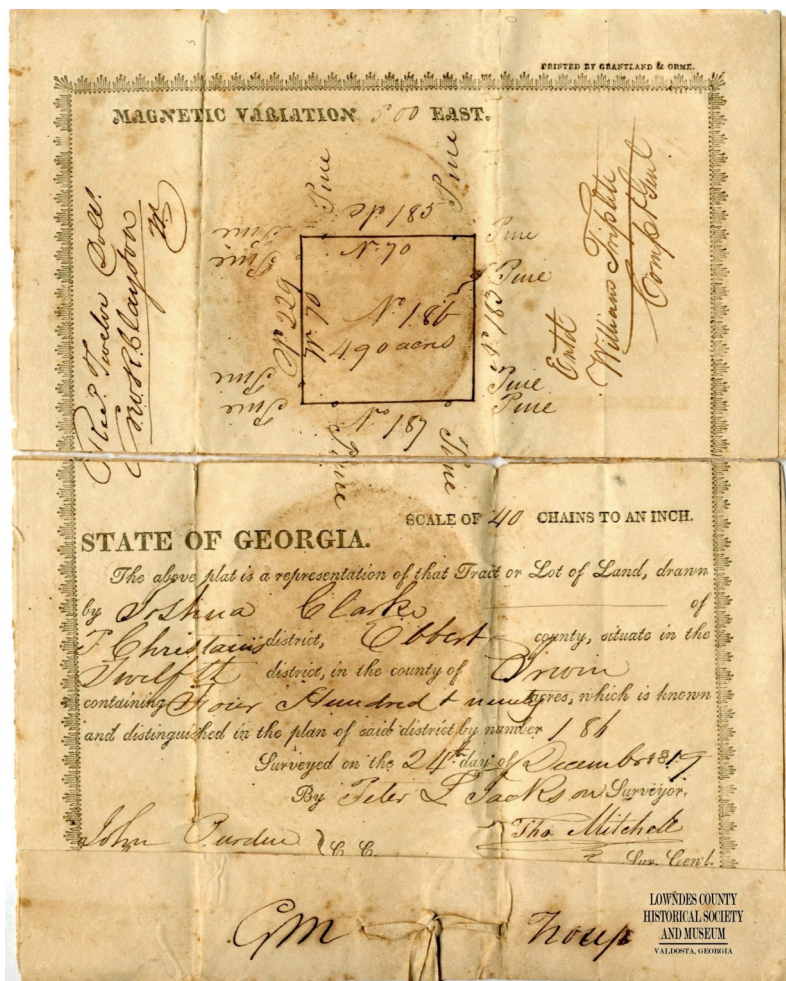 PRINTED BY GRANTLAND & ORME.
MAGNETIC VARIATION 5.00 EAST.
Recd. Twelve Dolls.
Clayton
Entd
William Triplett
Comp Genl
Pine
Pine
Pine
Pine
No 185
Pine
Pine
No 229
70
No 186
490 acres
No 183
Pine
Pine
Pine
Pine
Pine
No 187
Pine
Pine
SCALE OF 40 CHAINS TO AN INCH.
STATE OF GEORGIA.
The above plat is a representation of that Tract or Lot of Land, drawn
by Joshua Clarke of
T Christians district, Elbert county, situate in the
Twelfth district, in the county of Irwin
containing Four Hundred & ninety acres, which is known
and distinguished in the plan of said district by number 186
Surveyed on the 24th day of December 1819
By Peter L Jackson Surveyor.
John Purdue } C. C.
Tho. Mitchell
Sur. Gen'l.
GM Troup
LOWNDES COUNTY
HISTORICAL SOCIETY
AND MUSEUM
VALDOSTA, GEORGIA